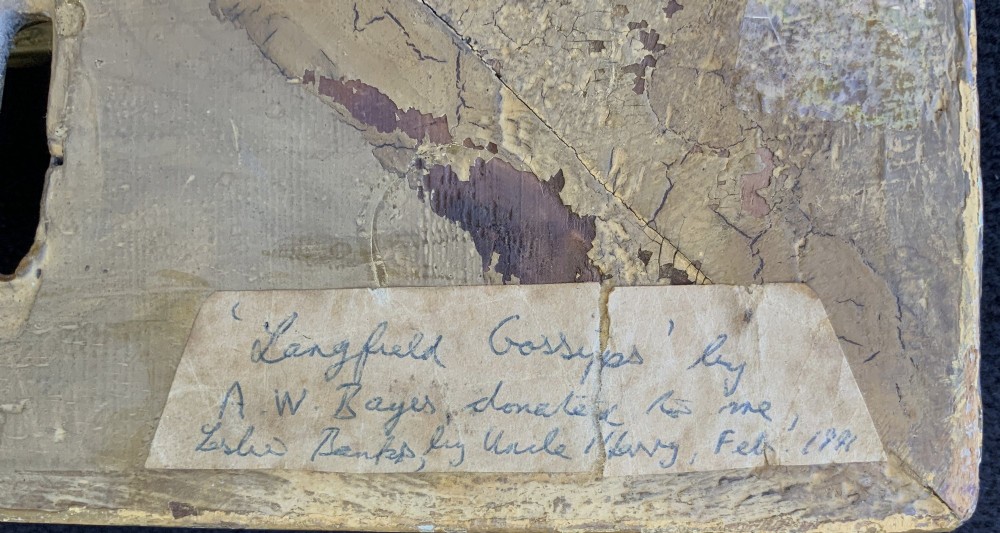 'Langfield Gossyps' by
A W Bayes, donated to me,
Leslie Banks, by Uncle Harry, Feb.